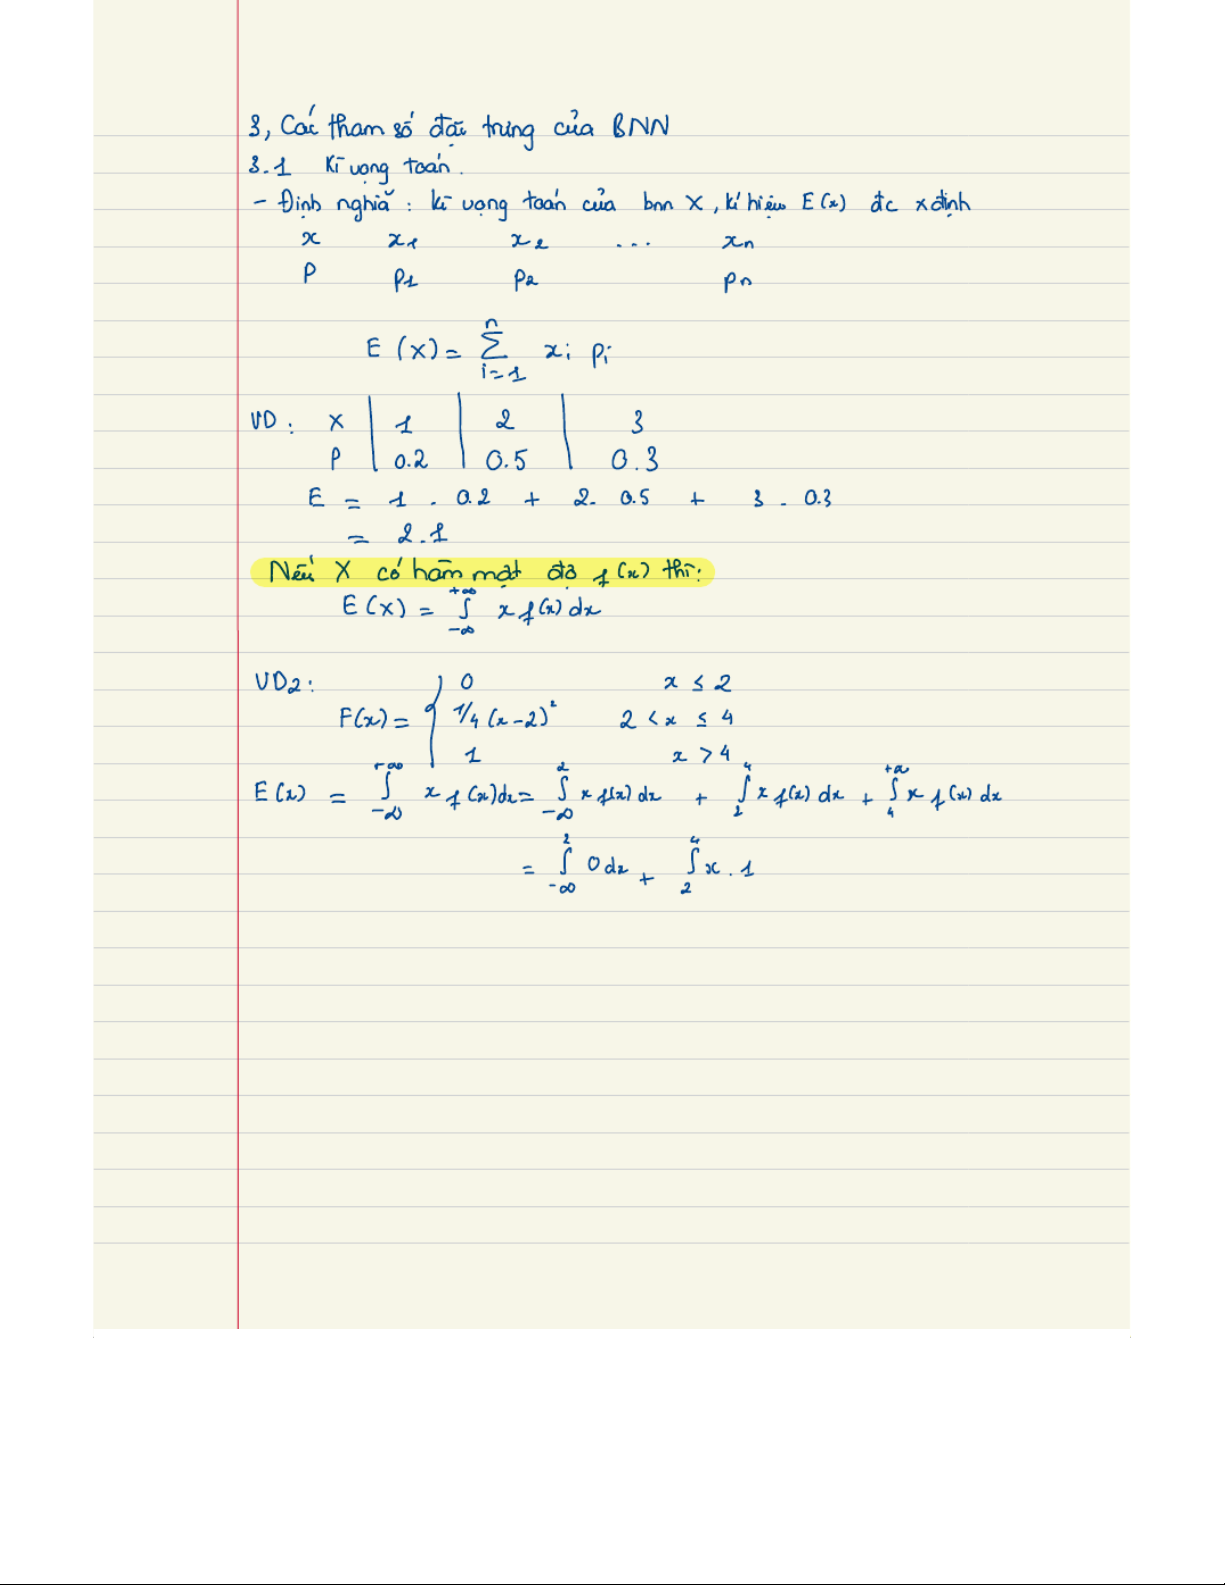 3, Các tham số đặc trưng của BNN
3.1 Kì vọng toán.
- Định nghĩa : kì vọng toán của bnn X, kí hiệu E(x) đc xđịnh
x x1 x2 ... xn
P p1 p2 pn
E (X) = ∑_{i=1}^{n} xi pi
VD : X | 1 | 2 | 3
P | 0.2 | 0.5 | 0.3
E = 1 . 0.2 + 2. 0.5 + 3 . 0.3
= 2.1
Nếu X có hàm mật độ f(x) thì:
E(X) = ∫_{-∞}^{+∞} x f(x) dx
VD2 : F(x) = { 0 x ≤ 2
1/4 (x-2)² 2 < x ≤ 4
1 x > 4
E(x) = ∫_{-∞}^{+∞} x f(x)dx = ∫_{-∞}^{2} x f(x) dx + ∫_{2}^{4} x f(x) dx + ∫_{4}^{+∞} x f(x) dx
= ∫_{-∞}^{2} 0 dx + ∫_{2}^{4} x . 1